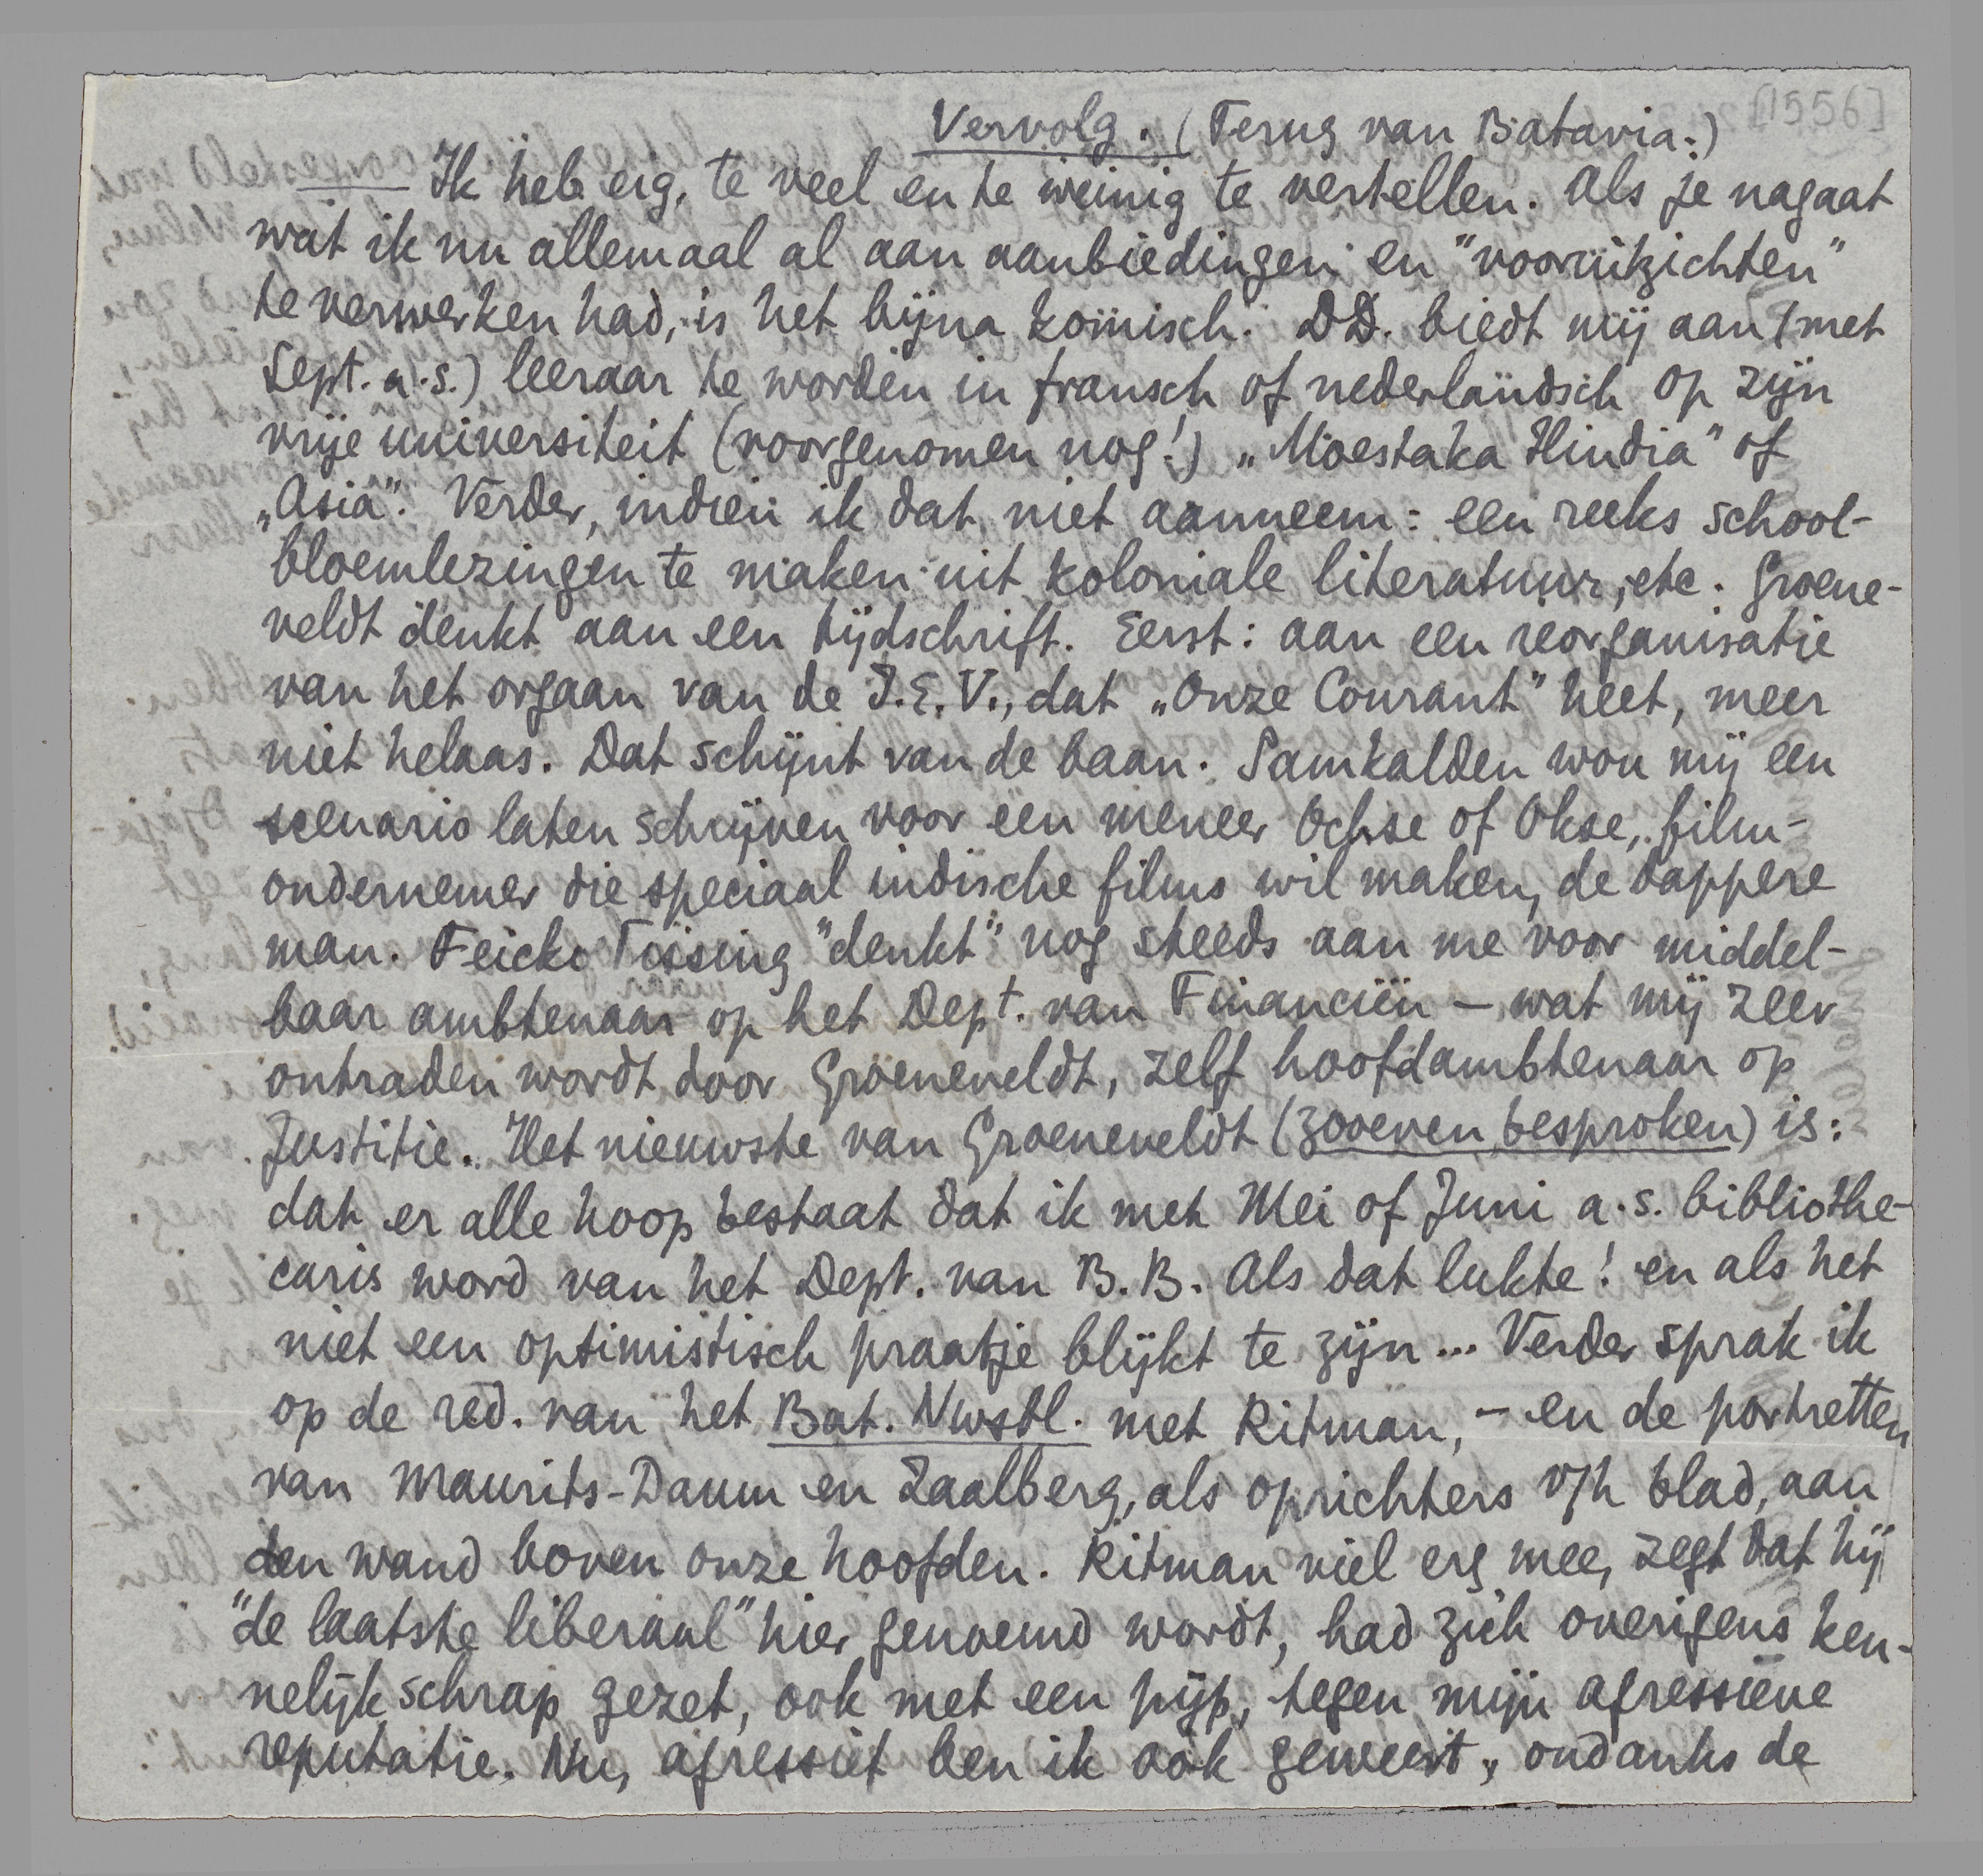 [1556]
Vervolg. (Terug van Batavia:)
— Ik heb eig. te veel en te weinig te vertellen. Als je nagaat
wat ik nu allemaal al aan aanbiedingen en "vooruitzichten"
te verwerken had, is het bijna komisch. DD. biedt mij aan (met
Sept. a.s.) leeraar te worden in fransch of nederlandsch op zijn
vrije universiteit (voorgenomen nog!) „Moestaka Hindia" of
„Asia". Verder, indien ik dat niet aanneem: een reeks school-
bloemlezingen te maken uit koloniale literatuur, etc. Groene-
veldt denkt aan een tijdschrift. Eerst: aan een reorganisatie
van het orgaan van de I.E.V., dat „Onze Courant" heet, meer
niet helaas. Dat schijnt van de baan. Samkalden wou mij een
scenario laten schrijven voor een meneer Ochse of Okse, film-
ondernemer die speciaal indische films wil maken, de dappere
man. Feicko Tissing "denkt" nog steeds aan me voor middel-
baar ambtenaar op het Dept. van Financiën — wat mij zeer
ontraden wordt door Groeneveldt, zelf hoofdambtenaar op
Justitie. Het nieuwste van Groeneveldt (zooeven besproken) is:
dat er alle hoop bestaat dat ik met Mei of Juni a.s. bibliothe-
caris word van het Dept. van B.B. Als dat lukte! en als het
niet een optimistisch praatje blijkt te zijn... Verder sprak ik
op de red. van het Bat. Nwsbl. met Ritman, — en de portretten
van Maurits-Daum en Zaalberg, als oprichters v/h blad, aan
den wand boven onze hoofden. Ritman viel erg mee, zegt dat hij
"de laatste liberaal" hier genoemd wordt, had zich overigens ken-
nelijk schrap gezet, ook met een pijp, tegen mijn agressieve
reputatie. Nu, agressief ben ik ook geweest, ondanks de